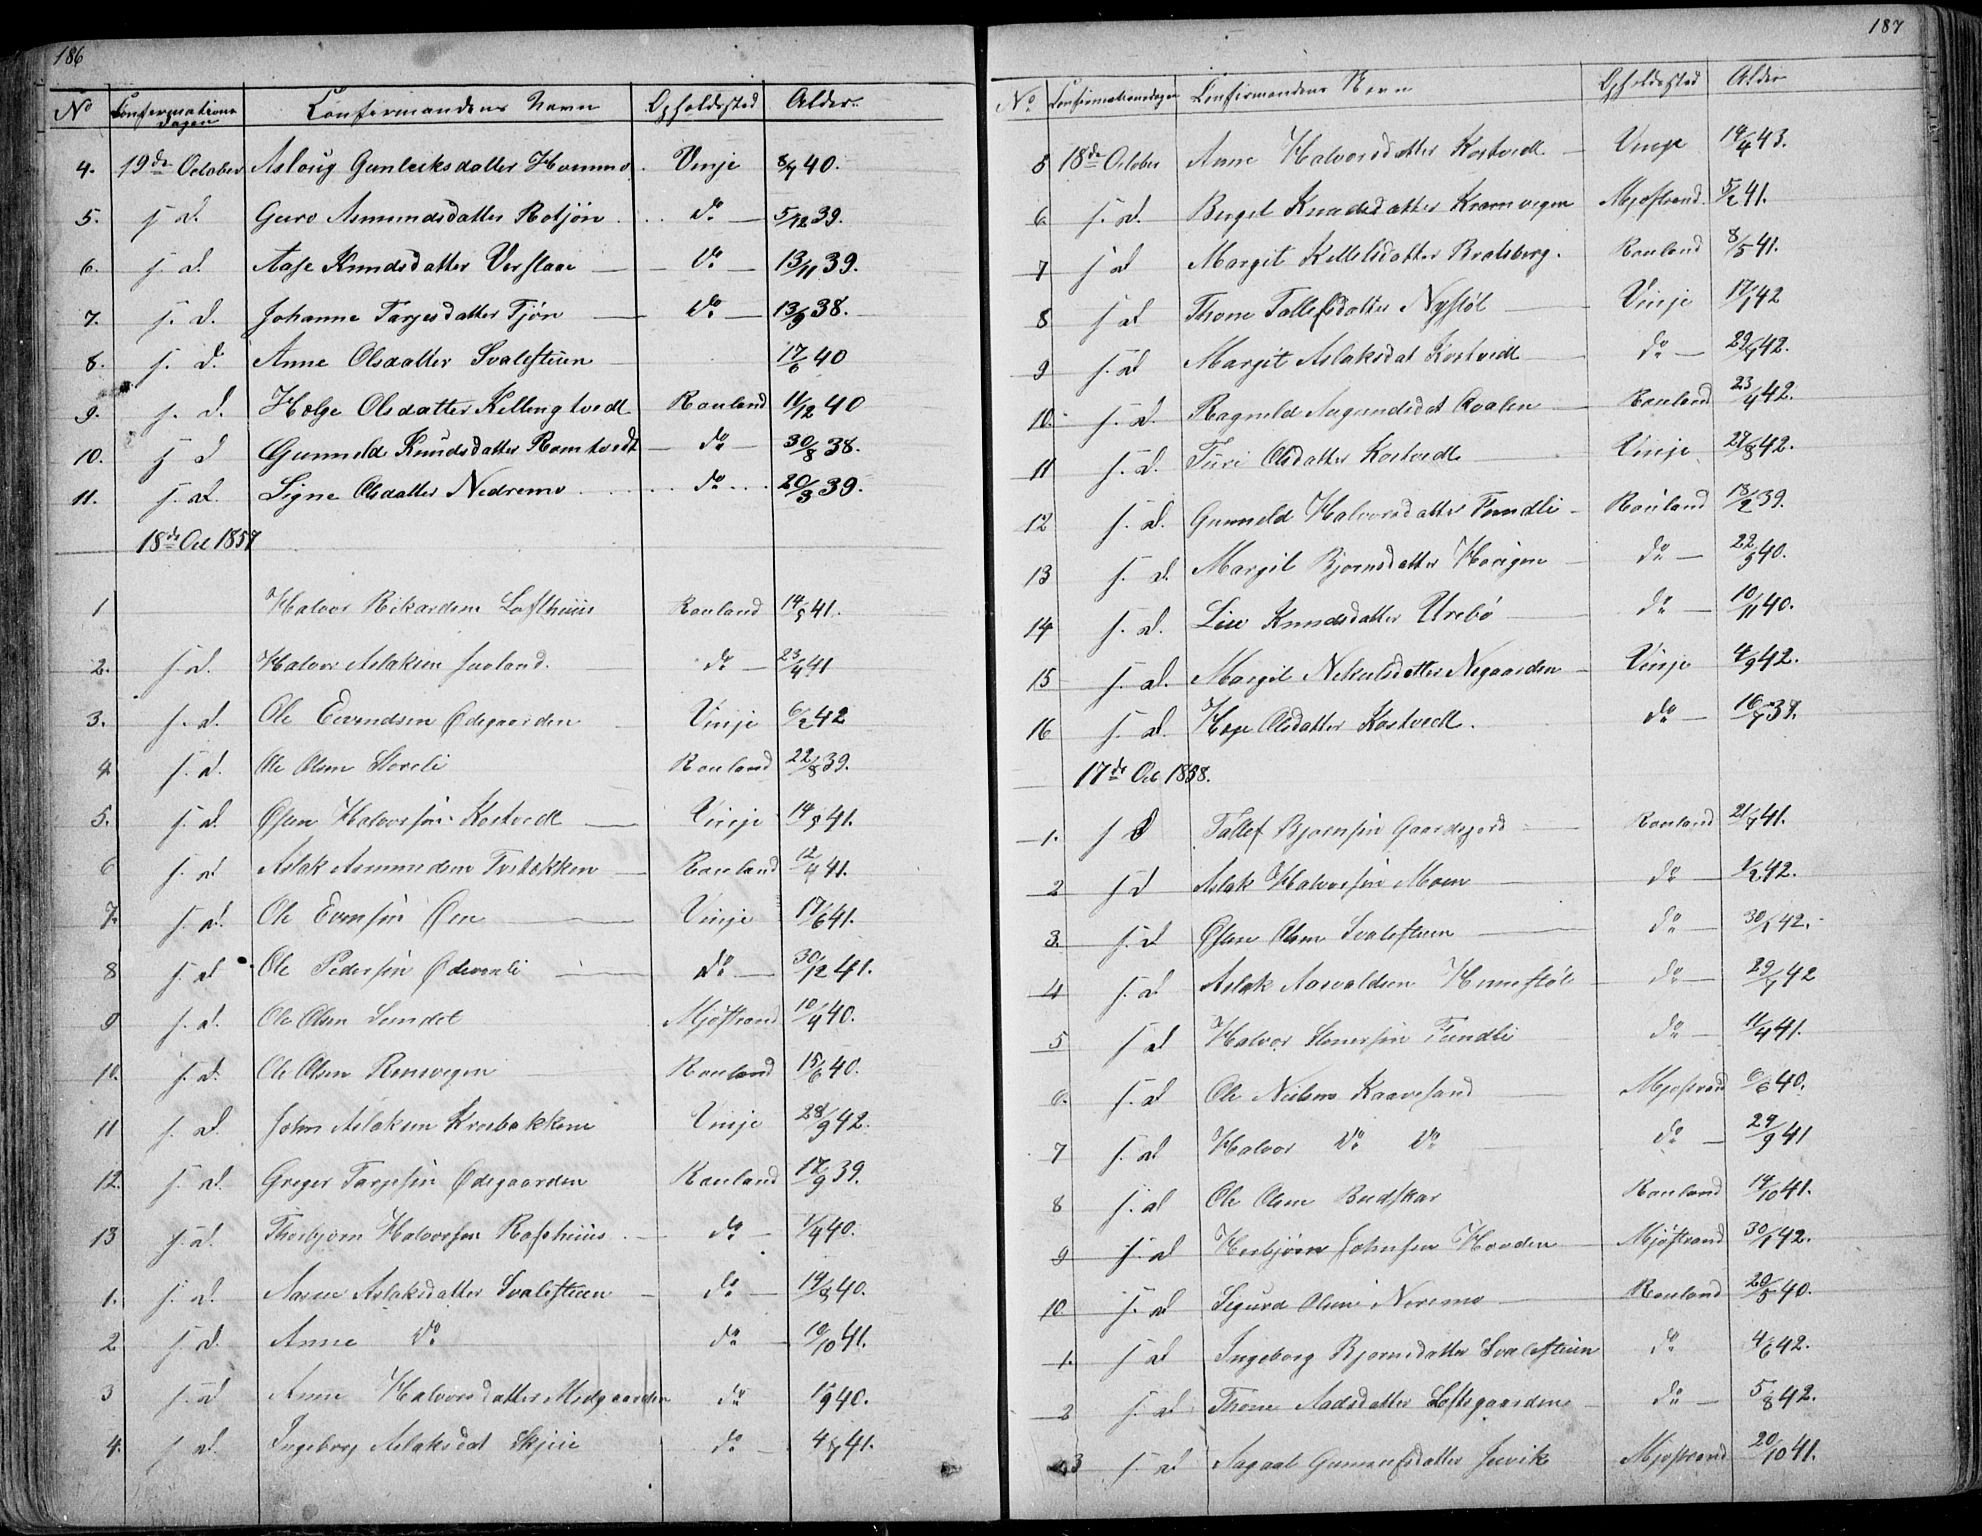 186
No Confirmations dagen Confirmandens Navn Opholdssted Alder
4. 19de October Aslaug Gunleiksdatter Hommo Vinje 8/7 40.
5. s d. Guro Asmundsdatter Rotjøn do 5/12 39.
6. s. d. Aase Knudsdatter Versland do 13/11 39.
7. s. d. Johanne Tarjesdatter Tjøn do 13/9 38.
8. s. d. Anne Olsdatter Svalestuen 17/6 40
9. s. d. Helge Olsdatter Kellingtvedt Rauland 11/12 40
10. s d Gunneld Knudsdatter Romtvedt do 30/8 38.
11. s. d. Signe Olsdatter Nedremo do 20/3 39.
18de Oct 1857
1 Halvor Rikardsen Lofthuus Rauland 14/5 41.
2. s d. Halvor Aslaksen do 23/4 41
3. s. d. Ole Evendsen Ødegaarden Vinje 6/2 42
4 s. d. Ole Olsen Storeli Rauland 22/8 39.
5. s. d. Østen Halvorsen Kostvedt Vinje 14/5 41.
6 s. d Aslak Asmundsen Rauland 12/4 41.
7. s d. Ole Evensen Øen Vinje 17/6 41.
8 s. d Ole Pedersen do 30/12 41.
9 s. d. Ole Olsen Sundet Mjøstrand 10/4 40.
10. s. d. Ole Olsen Romvegen Rauland 15/6 40.
11 s. d. John Aslaksen Krosbakken Vinje 28/9 42.
12. s. d. Greger Tarjesen Ødegaarden Rauland 17/9 39.
13 s. d. Thorbjørn Halvorsen do 1/4 40.
1. s. d. Aasne Aslaksdatter Svalestuen do 14/3 40.
2 s d. Anne do do 10/10 41.
3 s. d Anne Halvorsdatter Midgaarden do 1/9 40.
4. s d. Ingeborg Aslaksdat Skjeie do 41.
187
No Confirmationsdagen Confirmandens Navn Opholdssted Alder
18de October Anne Halvorsdatter Kostvedt Vinje 14/4 43.
6 s. d. Bergit Knudsdatter Kromvegen Mjøstrand 5/2 41.
7 s d Margit Kittelsdatter Bratsberg. Rauland 8/5 41.
8 s d Thone Tallefsdatter Nystøl Vinje 17/1 42
9 s. d Margit Aslaksdat Kostvedt do 42.
10. s. d. Ragneld Aagundsdat Qvalen Rauland 23/4 42.
11 s. d. Turi Olsdatter Kostvedt Vinje 27/8 42.
12 s. d. Gunneld Halvorsdatter Fundli Rauland 18/2 39.
13 s. d. Margit Bjørnsdatter do 22/9 40.
14 s. d. Liv Knudsdatter Urebø do 10/11 40.
15 s. d. Margit Nikulsdatter Negaarden Vinje 4/9 42.
16 s. d. Hæge Olsdatter Kostvedt. do 38.
17de Oct 1858.
1. s d Tallef Bjørnsen Gaardsjord Rauland 21/7 41.
2 s d Aslak Halvorsen Moen do 1/2 42.
3. s. d Østen Olsen Svalestuen do 30/1 42.
4 s. d Aslak Aasvaldsen do 29/1 42
5 s d Halvor Steinersen Fundli do 11/4 41.
6. s. d Ole Nielsen Kaavesand Mjøstrand 6/6 40.
7 s. d Halvor do do do 24/9 41
8 s. d Ole Olsen Budskar Rauland 14/10 41.
9 s d Herbjørn Johnsen Hovden Mjøstrand 30/1 42.
10 s. d Sigurd Olsen Noremo Rauland 20/5 40.
1. s d Ingeborg Bjørnsdatter Svalestuen do 4/6 42.
2 s. d Thone Aadsdatter Loftsgaarden do 5/8 42.
3 s. d Aagaat Gunnufsdatter Juvik Mjøstrand 20/10 41.